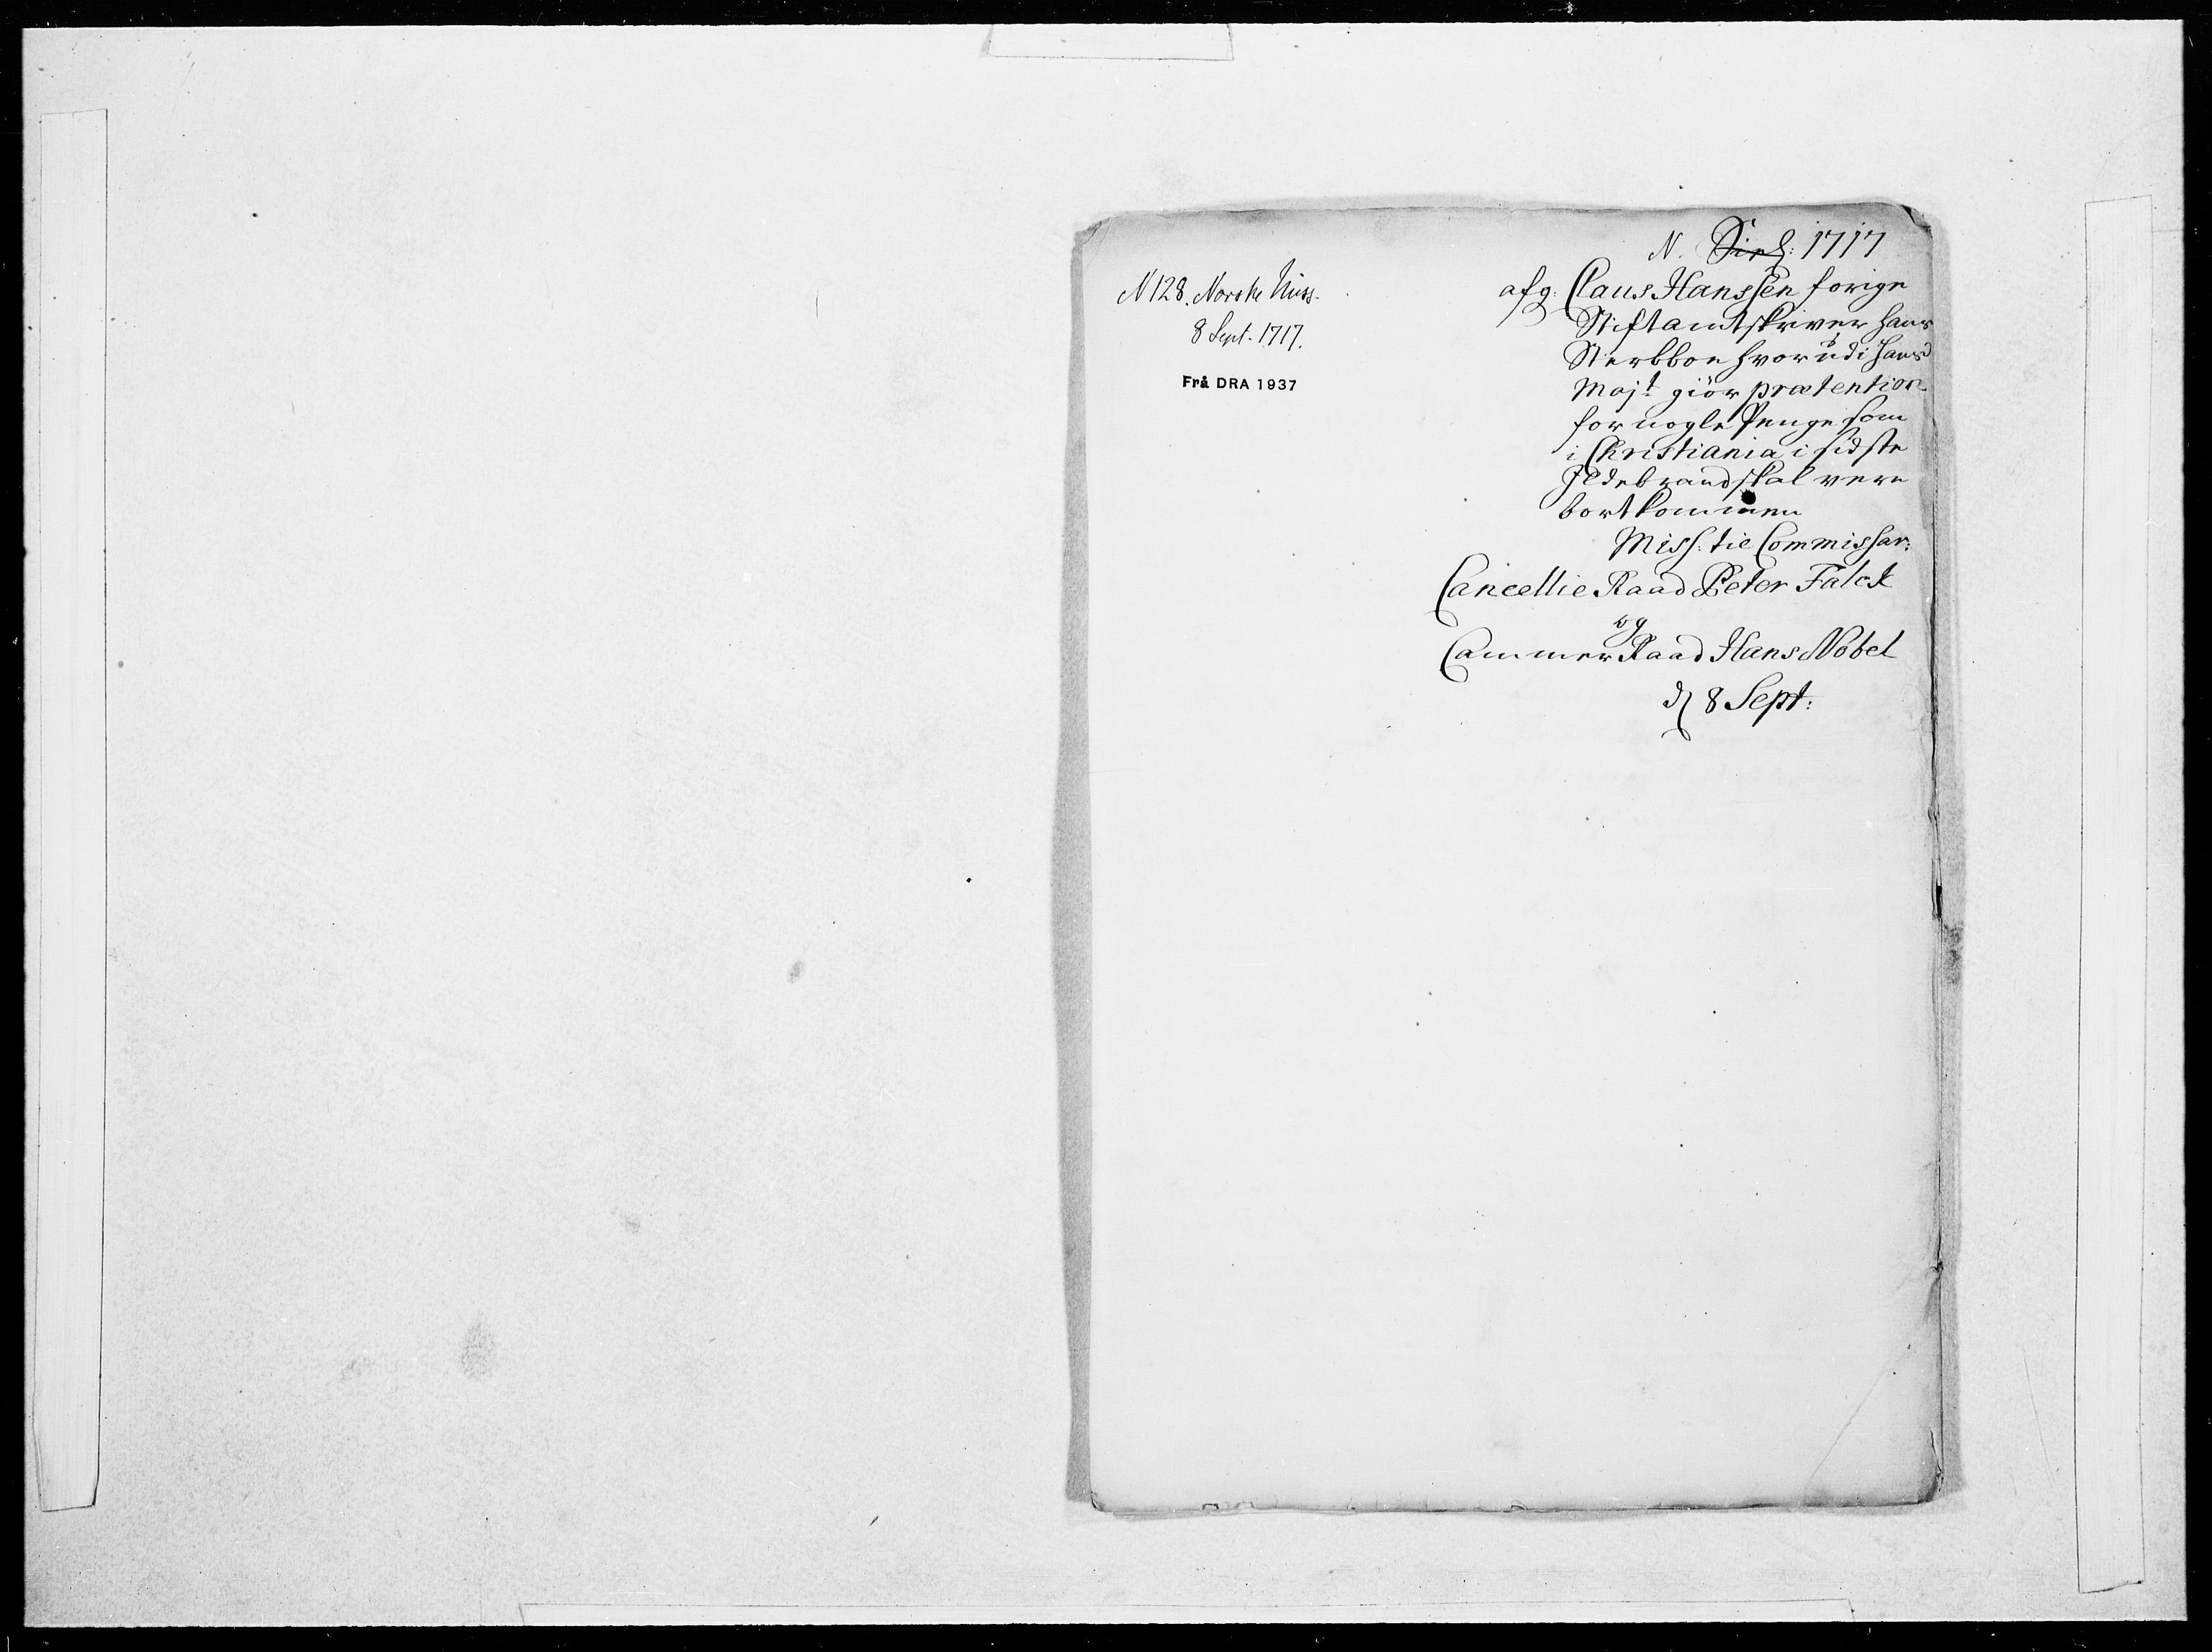 N 128. Norske Miss.
8 Sept. 1717.
Frå DRA 1937
N. 1717
afg: Claus Hanssen forige
Stiftamtskriver hans
Sterbboe hvorudi hans
Majt giör prætention
for nogle Penge som
i Christiania i sidste
Ildebrand skal være
bortkommen
Miss: til Commissar:
Cancellie Raad Peter Falck
og
Cammer Raad Hans Nobel
d 8 Sept: